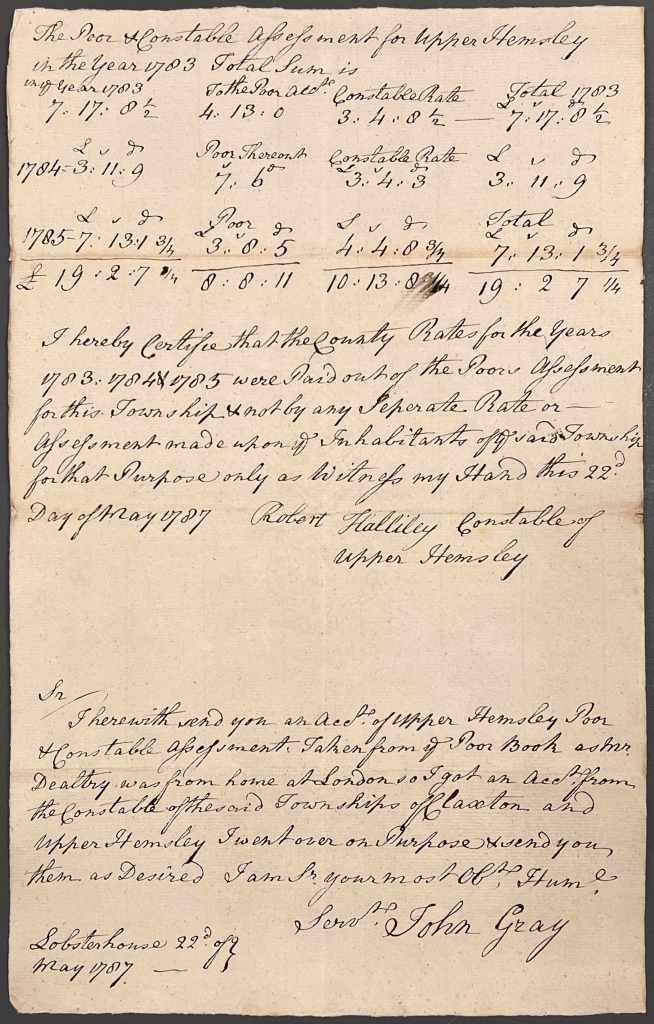 The Poor & Constable Assessment for Upper Hemsley
in the Year 1783 Total Sum is
in ye Year 1783 To the Poor Accts. Constable Rate Total 1783
£ s d
7: 17: 8 1/2 4: 13: 0 3: 4: 8 1/2 — 7: 17: 8 1/2
£ s d Poor Thereout Constable Rate £ s d
1784 = 3: 11: 9 7: 6d £3: 4: 3 3: 11: 9
£ s d Poor £ s d Total
1785 = 7: 13: 1 3/4 £3: 8: 5 4: 4: 8 3/4 £7: 13: 1 3/4
£ 19: 2: 7 1/4 8: 8: 11 10: 13: 8 1/4 19: 2 7 1/4
I hereby Certifie that the County Rates for the Years
1783: 1784 & 1785 were Paid out of the Poors Assessment
for this Township & not by any Seperate Rate or —
Assessment made upon ye Inhabitants of ye said Township
for that Purpose only as Witness my Hand this 22d.
Day of May 1787 Robert Halliley Constable of
Upper Hemsley
Sr
I herewith send you an Acct. of Upper Hemsley Poor
& Constable Assessment. Taken from ye Poor Book as Mr.
Dealtry was from home at London so I got an Acct. from
the Constable of the said Townships of Claxton and
Upper Hemsley I went over on Purpose & send you
them as Desired I am Sr. your most Obt. Hume.
Servt. John Gray
Lobsterhouse 22d of
May 1787 —